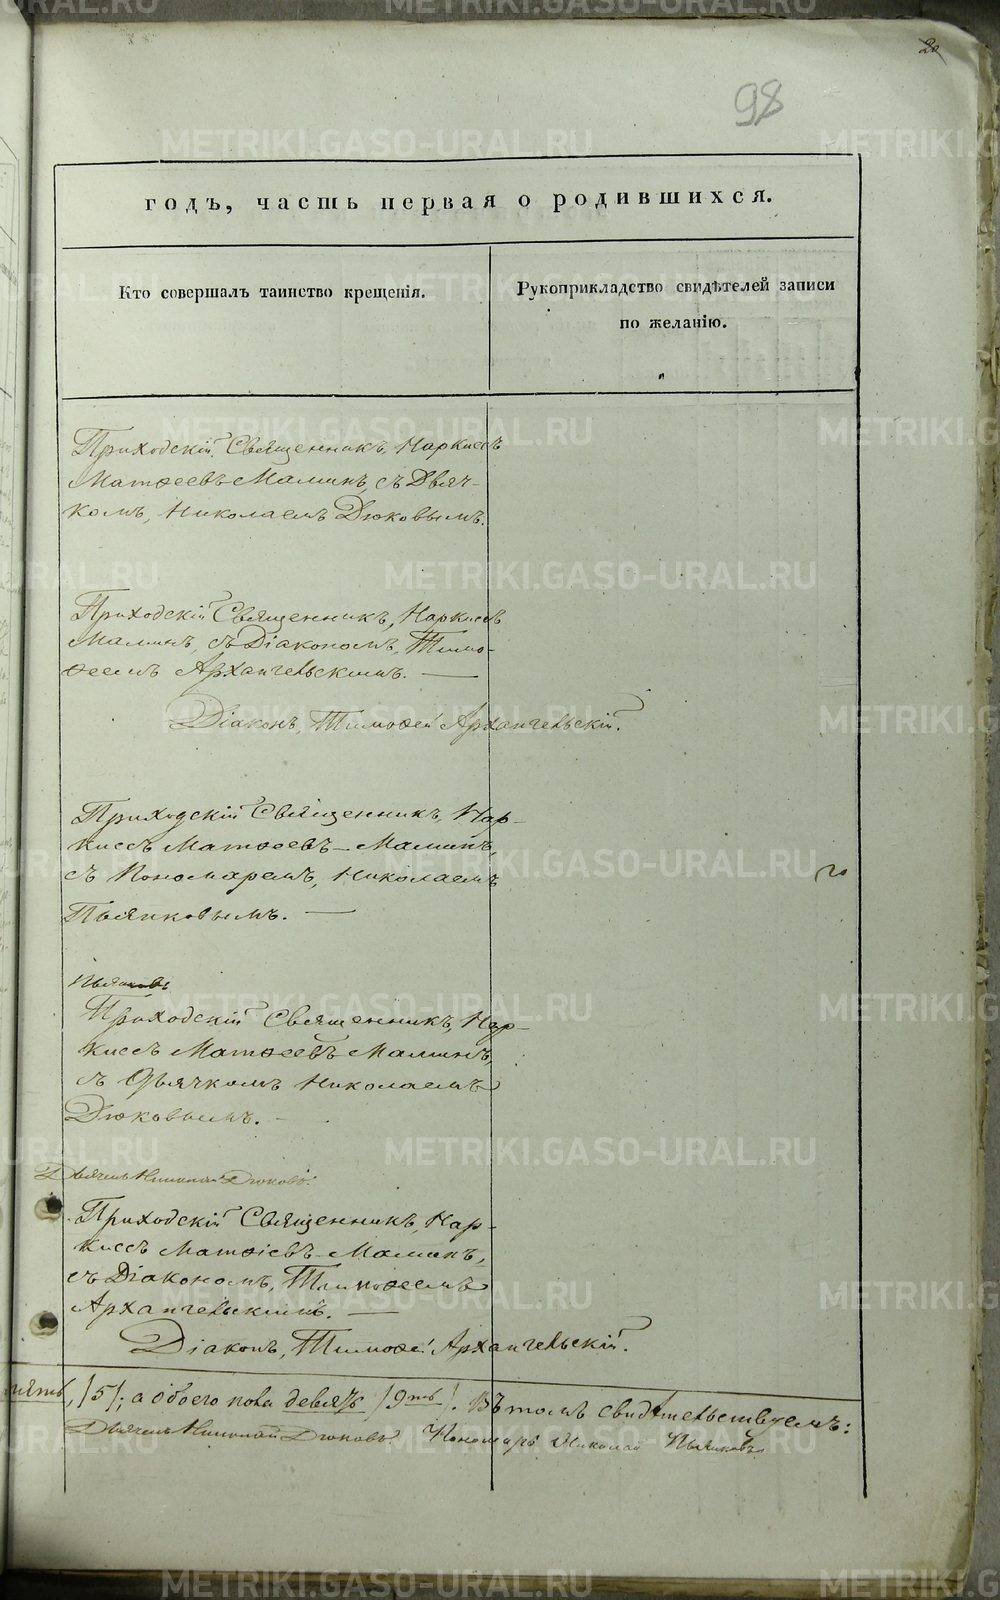 20
98
годъ, часть первая о родившихся.
Кто совершалъ таинство крещенія.
Рукоприкладство свидѣтелей записи
по желанію.
Приходскій Священникъ, Наркиссъ
Матѳеевъ Маминъ, съ Дьяч-
комъ, Николаемъ Дюковымъ.
Приходскій Священникъ, Наркиссъ
Маминъ, съ Діакономъ, Тимо-
ѳеемъ Архангельскимъ.
Діаконъ, Тимоѳей Архангельскій.
Приходскій Священникъ, Нар-
киссъ Матѳеевъ Маминъ,
съ Пономаремъ, Николаемъ
Пьянковымъ.
Пьянковъ
Приходскій Священникъ, Нар-
киссъ Матѳеевъ Маминъ,
съ Дьячкомъ Николаемъ
Дюковымъ.
Дьячекъ Николай Дюковъ.
Приходскій Священникъ, Нар-
киссъ Матѳіевъ Маминъ,
съ Діакономъ, Тимоѳеемъ
Архангельскимъ.
Діаконъ, Тимоѳей Архангельскій.
пять, /5/; а обоего пола девять /9ть/. Въ томъ свидѣтельствуемъ:
Дьячекъ Николай Дюковъ. Пономарь Николай Пьянковъ
METRIKI.GASO-URAL.RU